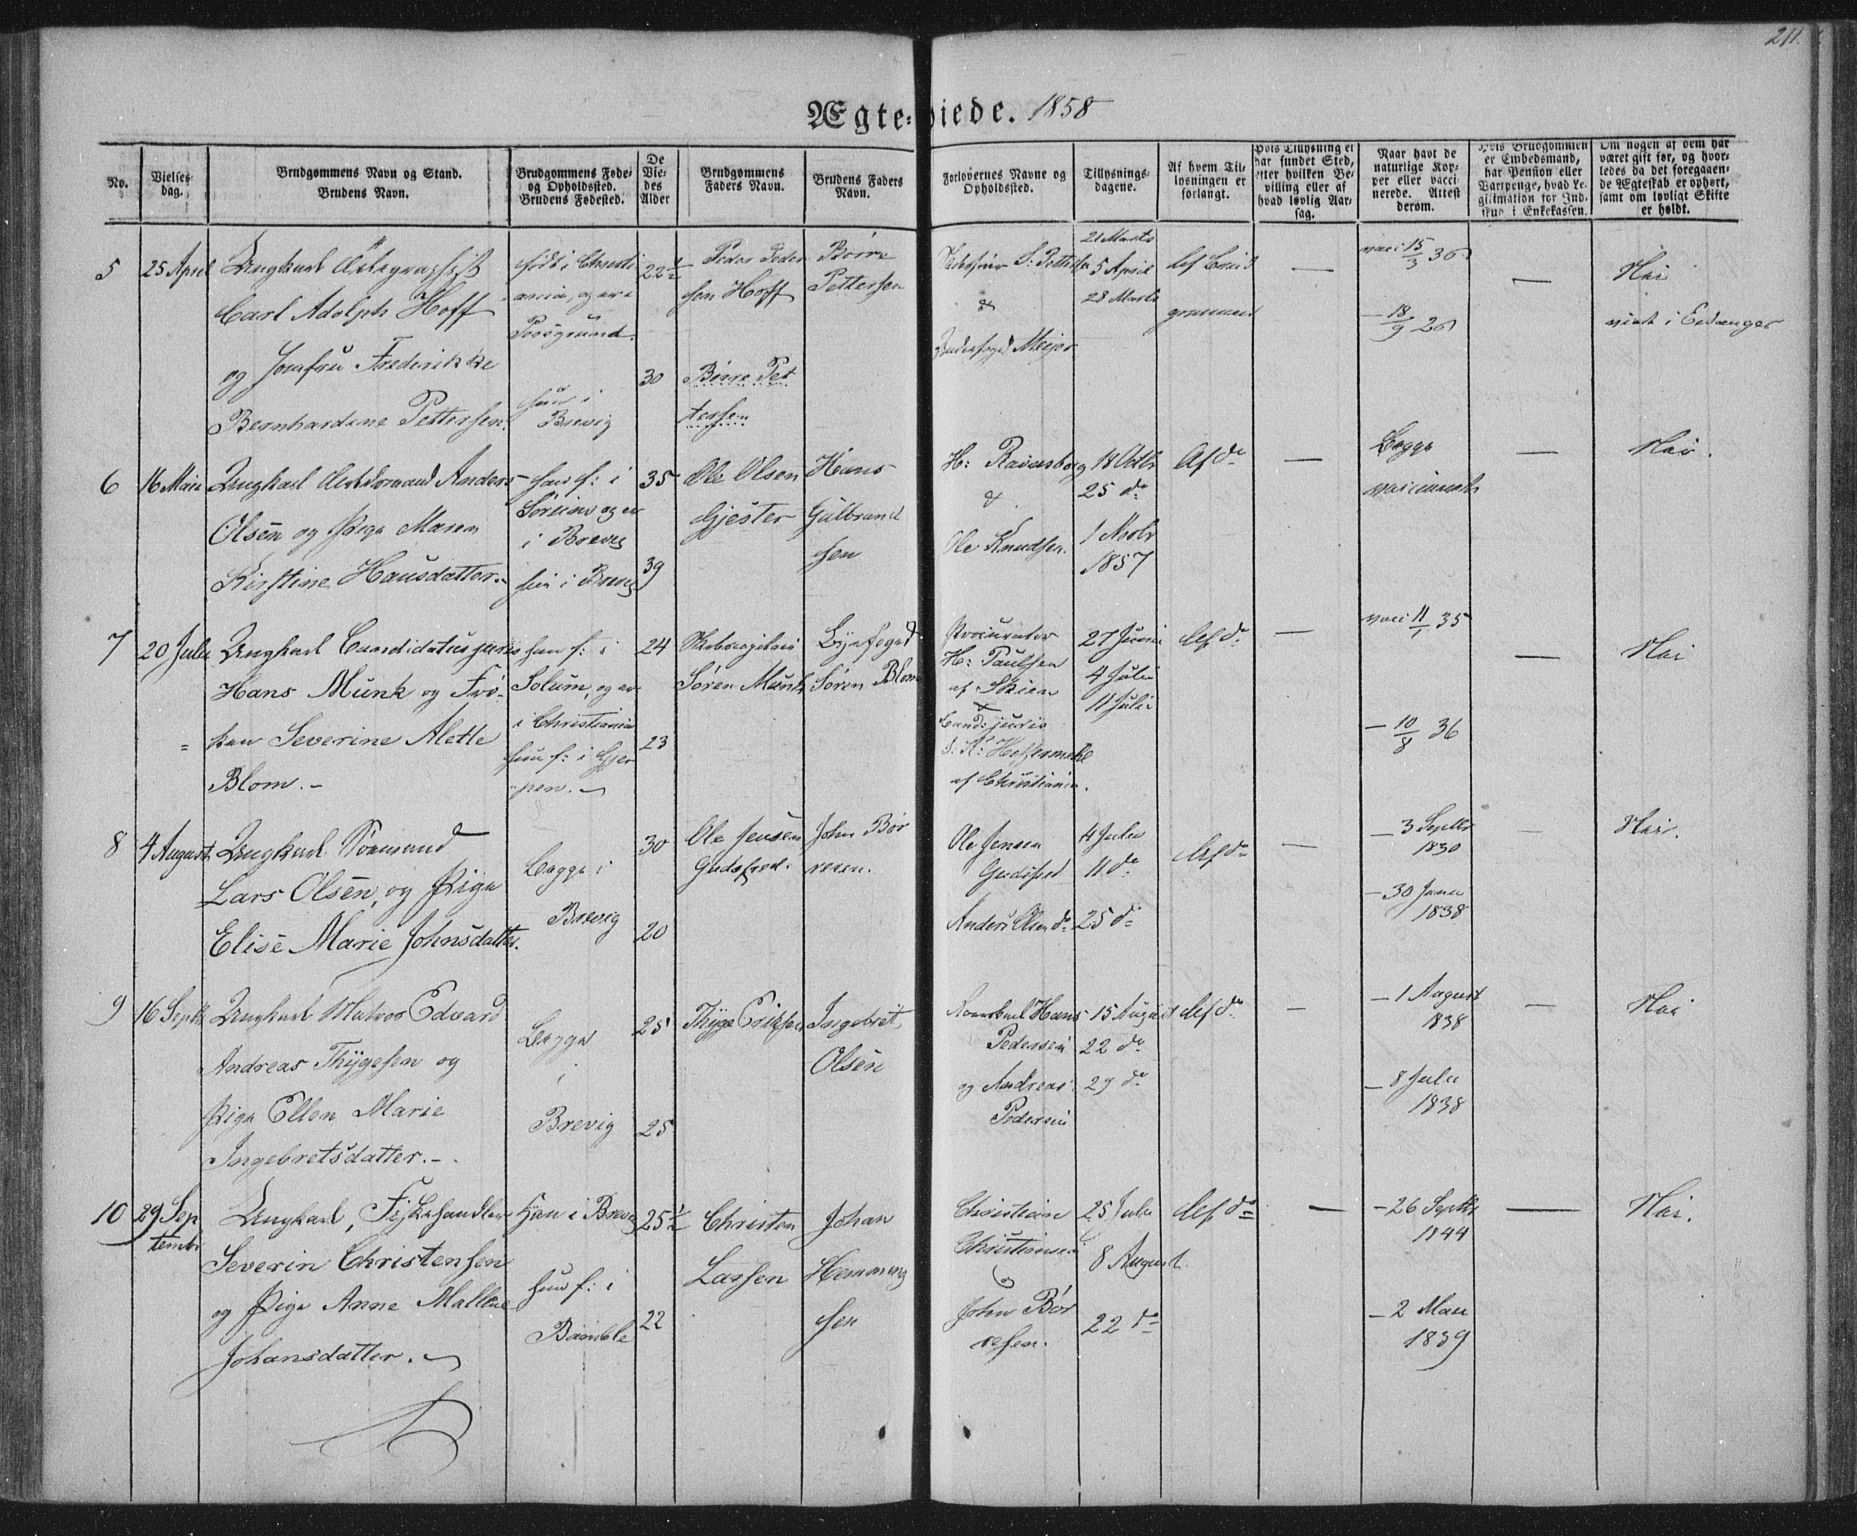 211.
Ægte-viede. 1858
No.
Vielses-
dag.
Brudgommens Navn og Stand.
Brudens Navn.
Brudgommens Føde-
og Opholdssted.
Brudens Fødested.
De
Vie-
des
Alder
Brudgommens
Faders Navn.
Brudens Faders
Navn.
Forlovernes Navne og
Opholdssted.
Tillysnings-
dagene.
Af hvem Til-
lysningen er
forlangt.
Hvis Tillysning ei
har fundet Sted,
efter hvilken Be-
villing eller af
hvad lovlig Aar-
sag.
Naar havt de
naturlige Kop-
per eller vacci-
nerede. Attest
derom.
Hvis Brudgommen
er Embedsmand,
har Pension eller
Vartpenge, hvad Le-
gitimation for Ind-
skud i Enkekassen.
Om nogen af dem har
været gift før, og hvor-
ledes da det foregaaen-
de Ægteskab er ophørt,
samt om lovligt Skifte
er holdt.
5
25 April
Ungkarl
Carl Adolph Hoff
og Jomfru Frederikke
Bernhardine Pettersen.
født i Christi
ania, og er i
Porsgrund.
hun i
Brevig
22½
30
Peder Peder
sen Hoff
Børre Pet
tersen
Børre
Pettersen
S. Pettersen
&
Meijer
21 Marts
5 April
28 Marts
Af Brud
grommen
—
vacc 15/3 36
— 18/9 26
—
Nei
viet i Eidanger
6
16 Mai
Ungkarl Anders
Olsen og Pige Maren
Kirstine Hansdatter.
han f: i
og er
i Brevig
hun i Brevig
35
39
Ole Olsen
Gjester
Hans
Gulbrand
sen
H: Ravensborg
&
Ole Knudsen.
18 Octbr
25 do
1 Novbr
1857
Af do
—
Begge
vaccinerede
—
Nei.
7
20 Juli
Ungkarl Candidatus juris
Hans Munk og Frø-
ken Severine Alette
Blom.-
han f: i
Solum, og er
i Christiania
hun f: i Gjer
pen.
24
23
Søren Munk
Byefoged
Søren Blom
Procurator
H: Paulsen
af Skien
&
Cand: juris
af Christiania.
27 Juni
4 Juli
11 Juli
Af do
—
vacc 11/1 35
— 10/8 36
—
Nei
8
4 August
Ungkarl Sømand
Lars Olsen, og Pige
Elise Marie Johnsdatter.
Begge i
Brevig
30
20
Ole Jensen
John Bør
resen.
Ole Jensen
Anders Olsen do
4 Juli
11 do
25 do
Af do
—
— 3 Septbr
1830
— 30 Janu
1838
—
Nei.
9
16 Septb
Ungkarl Matros Edvard
Andreas Thygesen og
Pige Ellen Marie
Ingebretsdatter.-.
Begge
i
Brevig
25
25
Thyge Eriksen
Ingebret
Olsen
Hans
Pedersen
og Andreas
Pedersen
15 August
22 do
29 do
Af do
—
— 1 August
1838
— 8 Juli
1838
—
Nei
10
29 Sep
tembr
Ungkarl, Fiskehandler
Severin Christensen
og Pige Anne Mallene
Johansdatter.
Han i Brevig
hun f: i
Bamble
25½
22
Christen
Larsen
Johan
Hemming
sen
Christian
Christiansen
&
John Bør
resen.
25 Juli
8 August
22 do
Af do
—
— 26 Septbr
1844
— 2 Mai
1839
—
Nei.